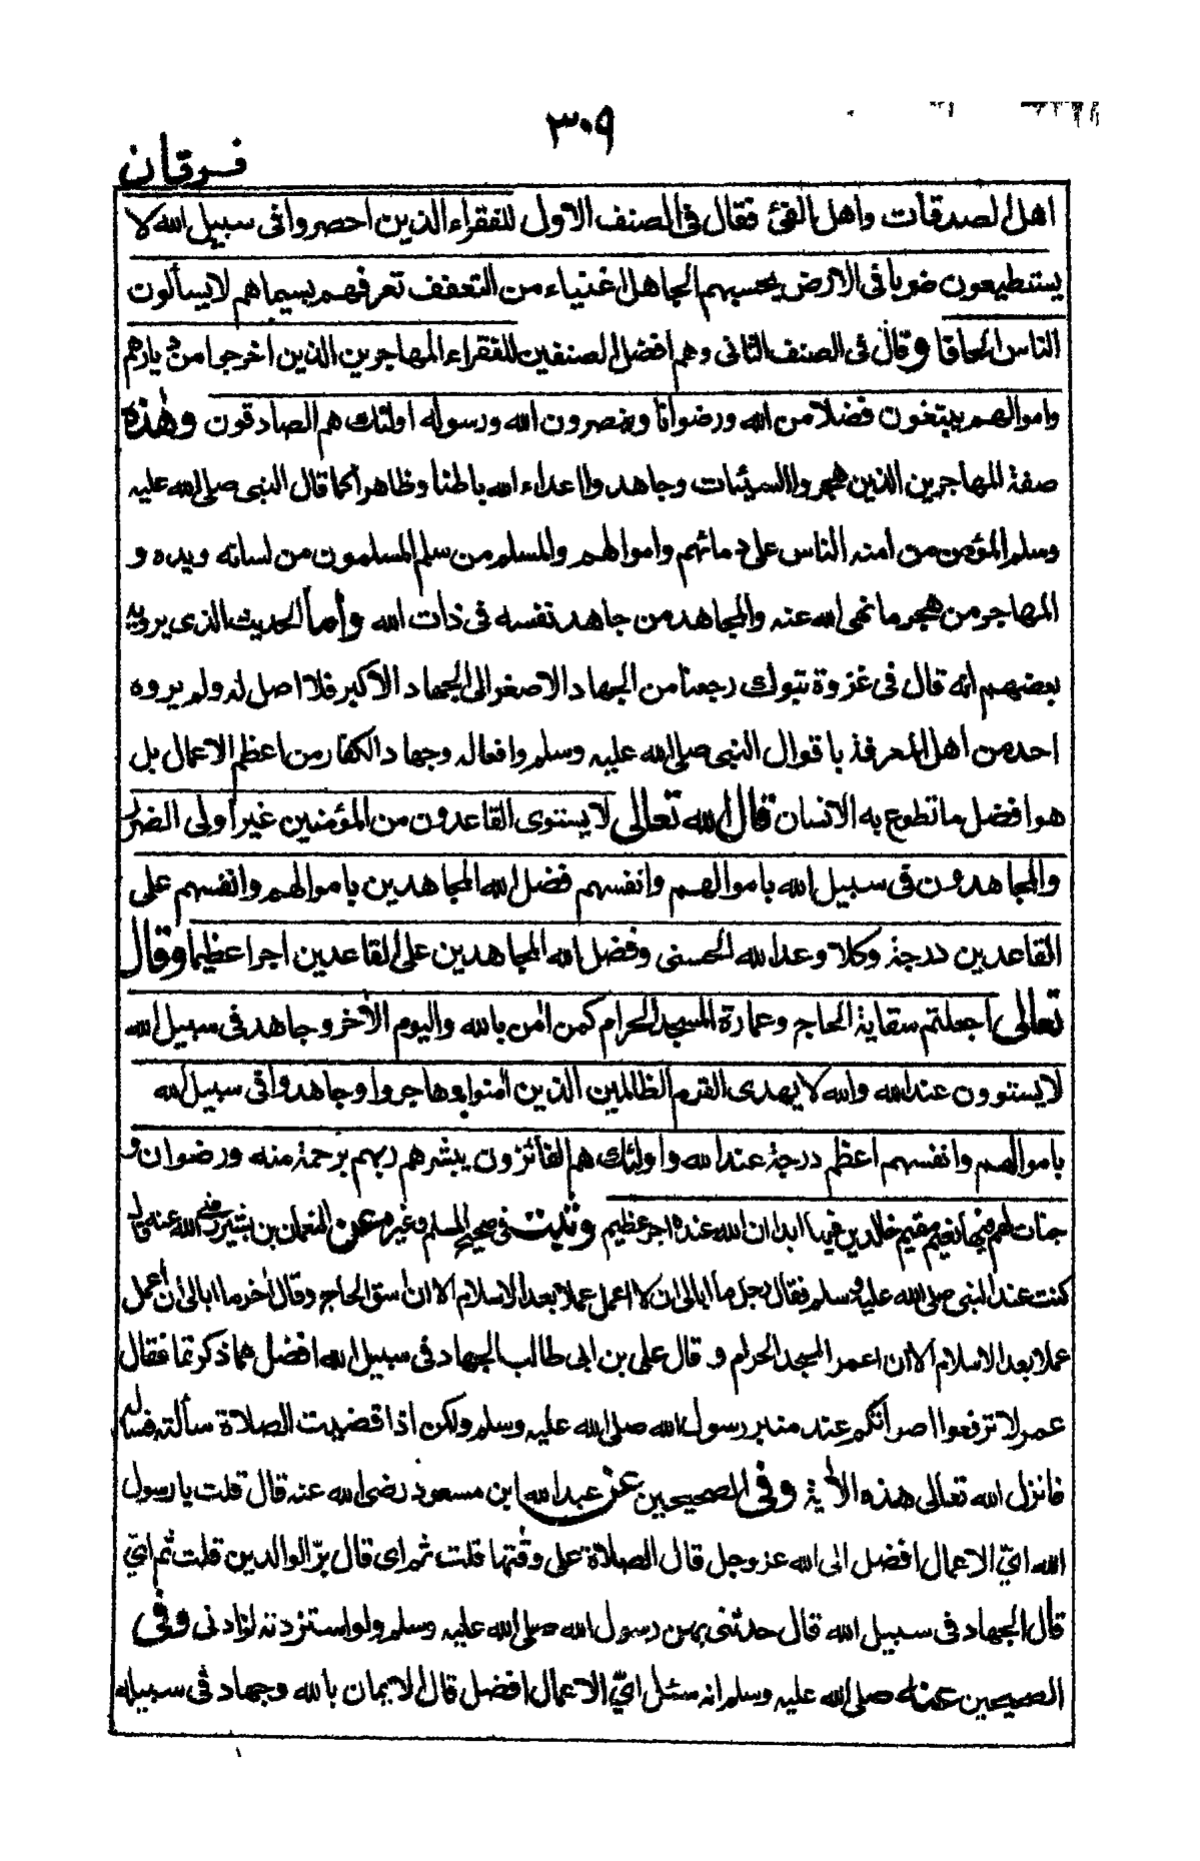 ٣٠٩
فرقان
اهل الصدقات واهل الفئ فقال فى الصنف الاول للفقراء الذين احصروا فى سبيل الله لا
يستطيعون ضربا فى الارض يحسبهم الجاهل اغنياء من التعفف تعرفهم بسيماهم لا يسألون
الناس الحافا وقال فى الصنف الثانى وهم افضل الصنفين للفقراء المهاجرين الذين اخرجوا من ديارهم
واموالهم يبتغون فضلا من الله ورضوانا وينصرون الله ورسوله اولئك هم الصادقون وهذه
صفة المهاجرين الذين هجروا السيئات وجاهدوا اعداء الله باطنا وظاهرا كما قال النبى صلى الله عليه
وسلم المؤمن من امنه الناس على دمائهم واموالهم والمسلم من سلم المسلمون من لسانه ويده و
المهاجر من هجر ما نهى الله عنه والمجاهد من جاهد نفسه فى ذات الله وأما الحديث الذى يرويه
بعضهم انه قال فى غزوة تبوك رجعنا من الجهاد الاصغر الى الجهاد الاكبر فلا اصل له ولم يروه
احد من اهل المعرفة باقوال النبى صلى الله عليه وسلم وافعاله وجهاد الكفار من اعظم الاعمال بل
هو افضل ما تطوع به الانسان قال الله تعالى لا يستوى القاعدون من المؤمنين غير اولى الضرر
والمجاهدون فى سبيل الله باموالهم وانفسهم فضل الله المجاهدين باموالهم وانفسهم على
القاعدين درجة وكلا وعد الله الحسنى وفضل الله المجاهدين على القاعدين اجرا عظيما وقال
تعالى اجعلتم سقاية الحاج وعمارة المسجد الحرام كمن امن بالله واليوم الاخر وجاهد فى سبيل الله
لا يستوون عند الله والله لا يهدى القوم الظالمين الذين امنوا وهاجروا وجاهدوا فى سبيل الله
باموالهم وانفسهم اعظم درجة عند الله واولئك هم الفائزون يبشرهم ربهم برحمة منه ورضوان و
جنات لهم فيها نعيم مقيم خالدين فيها ابدا ان الله عنده اجر عظيم وثبت فى صحيح المسلم وغيره عن النعمان بن بشير رضى الله عنه قال
كنت عند النبى صلى الله عليه وسلم فقال رجل ما ابالى ان لا اعمل عملا بعد الاسلام الا ان اسقى الحاج وقال آخر ما ابالى ان اعمل
عملا بعد الاسلام الا ان اعمر المسجد الحرام و قال على بن ابى طالب الجهاد فى سبيل الله افضل مما ذكرتما فقال
عمر لا ترفعوا اصواتكم عند منبر رسول الله صلى الله عليه وسلم ولكن اذا قضيت الصلاة سألته فساله
فانزل الله تعالى هذه الاٰية وفى الصحيحين عن عبد الله ابن مسعود رضى الله عنه قال قلت يا رسول
الله اىّ الاعمال افضل الى الله عز وجل قال الصلاة على وقتها قلت ثم اى قال برّ الوالدين قلت ثم اىّ
قال الجهاد فى سبيل الله قال حدثنى بهن رسول الله صلى الله عليه وسلم ولو استزدته لزادنى وفى
الصحيحين عنه صلى الله عليه وسلم انه سئل اىّ الاعمال افضل قال الايمان بالله وجهاد فى سبيله